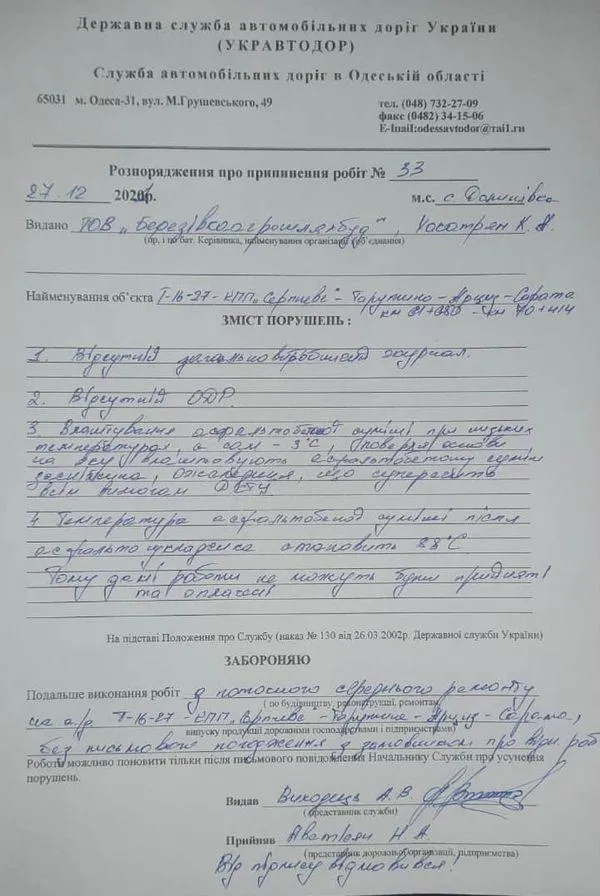 Державна служба автомобільних доріг України
(УКРАВТОДОР)
Служба автомобільних доріг в Одеській області
65031 м. Одеса-31, вул. М.Грушевського, 49
тел. (048) 732-27-09
факс (0482) 34-15-06
E-mail:odessavtodor@tai1.ru
Розпорядження про припинення робіт № 33
27.12 2021р.
м.с. с.
Видано ТОВ „Березівкаагрошляхбуд",
(пр. і по бат. Керівника, найменування організації (об'єднання)
Найменування об'єкта Т-16-27 - КПП „Серпневе" - Тарутине - Арциз - Сарата
км 70+414
ЗМІСТ ПОРУШЕНЬ :
1. Відсутній журнал.
2. Відсутній ОДР.
3. Влаштування асфальтобетоної суміші при низьких
температурах, а сам - 3°С, поверхня основи
на яку влаштовують асфальтобетону суміш
засніжена, що суперечить
всім вимогам ДСТУ.
4 Температура асфальтобетоної суміші після
асфальтоукладчика становить 88°С.
Тому дані роботи не можуть бути прийняті
та оплачені
На підставі Положення про Службу (наказ № 130 від 26.03.2002р. Державної служби України)
ЗАБОРОНЯЮ
Подальше виконання робіт з поточного середнього ремонту
( по будівництву, реконструкції, ремонтам,
на а/д Т-16-27 - КПП „Серпневе - Тарутине - Арциз - Сарата,
випуску продукції дорожніми господарствами і підприємствами)
без письмового погодження з замовником про
Роботи можливо поновити тільки після письмового повідомлення Начальнику Служби про усунення
порушень.
Видав А. В.
(представник служби)
Прийняв Н А.
(представник дорожньої організації, підприємства)
Від підпису відмовився!